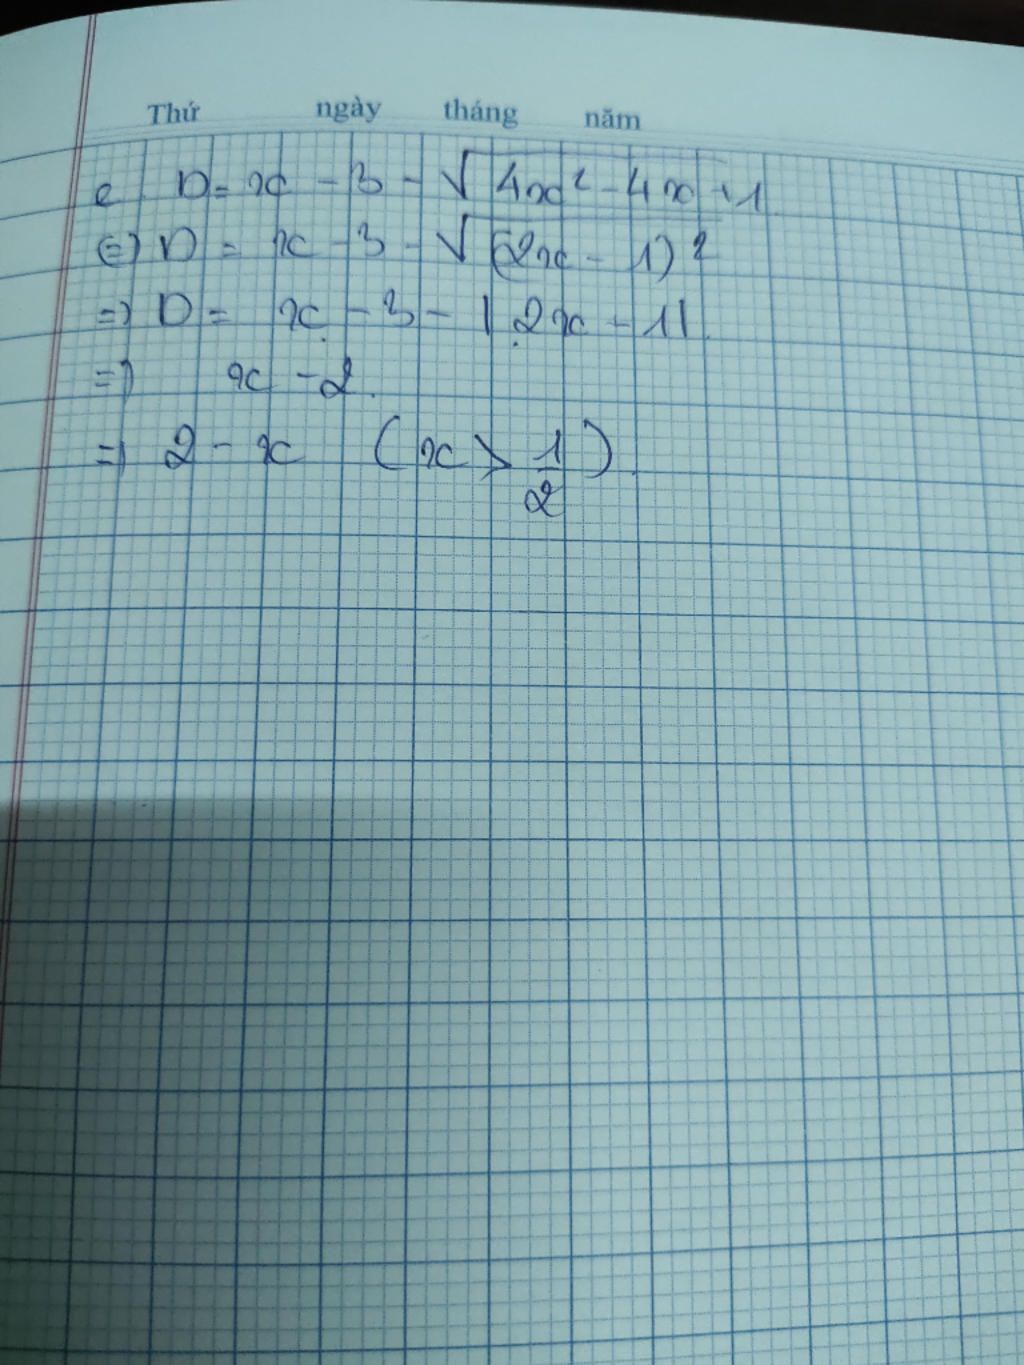 Thứ ngày tháng năm
e. D = x - 3 - √4x² - 4x + 1
(=) D = x - 3 - √(2x - 1)²
=) D = x - 3 - |2x - 1|
=) x - 2.
=) 2 - x (x > 1/2).